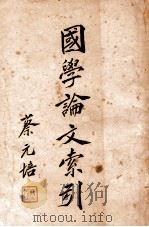 國學論文索引
蔡元培
mtoou.info